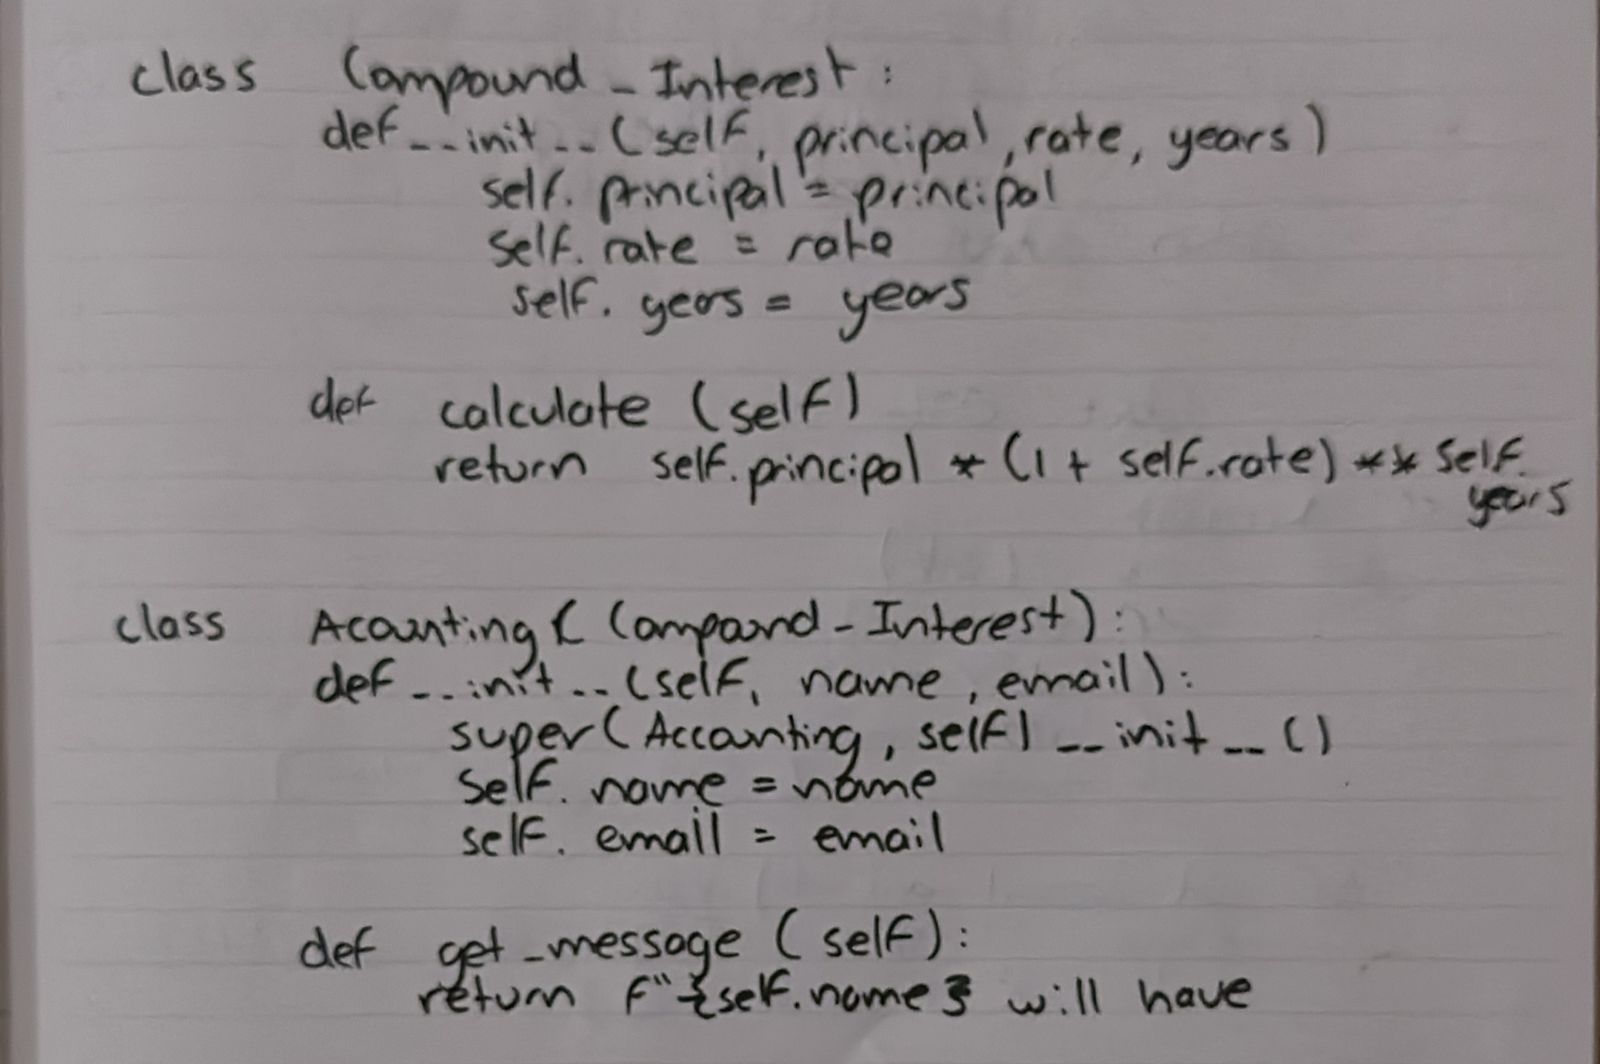 class Compound_Interest:
def__init__(self, principal, rate, years)
self. principal = principal
self. rate = rate
self. years = years
def calculate (self)
return self.principal * (1 + self.rate) ** self.
years
class Acounting ( Compound_Interest):
def__init__(self, name, email):
super(Accounting, self)__init__()
self. name = name
self. email = email
def get_message (self):
return f"{self.name} will have